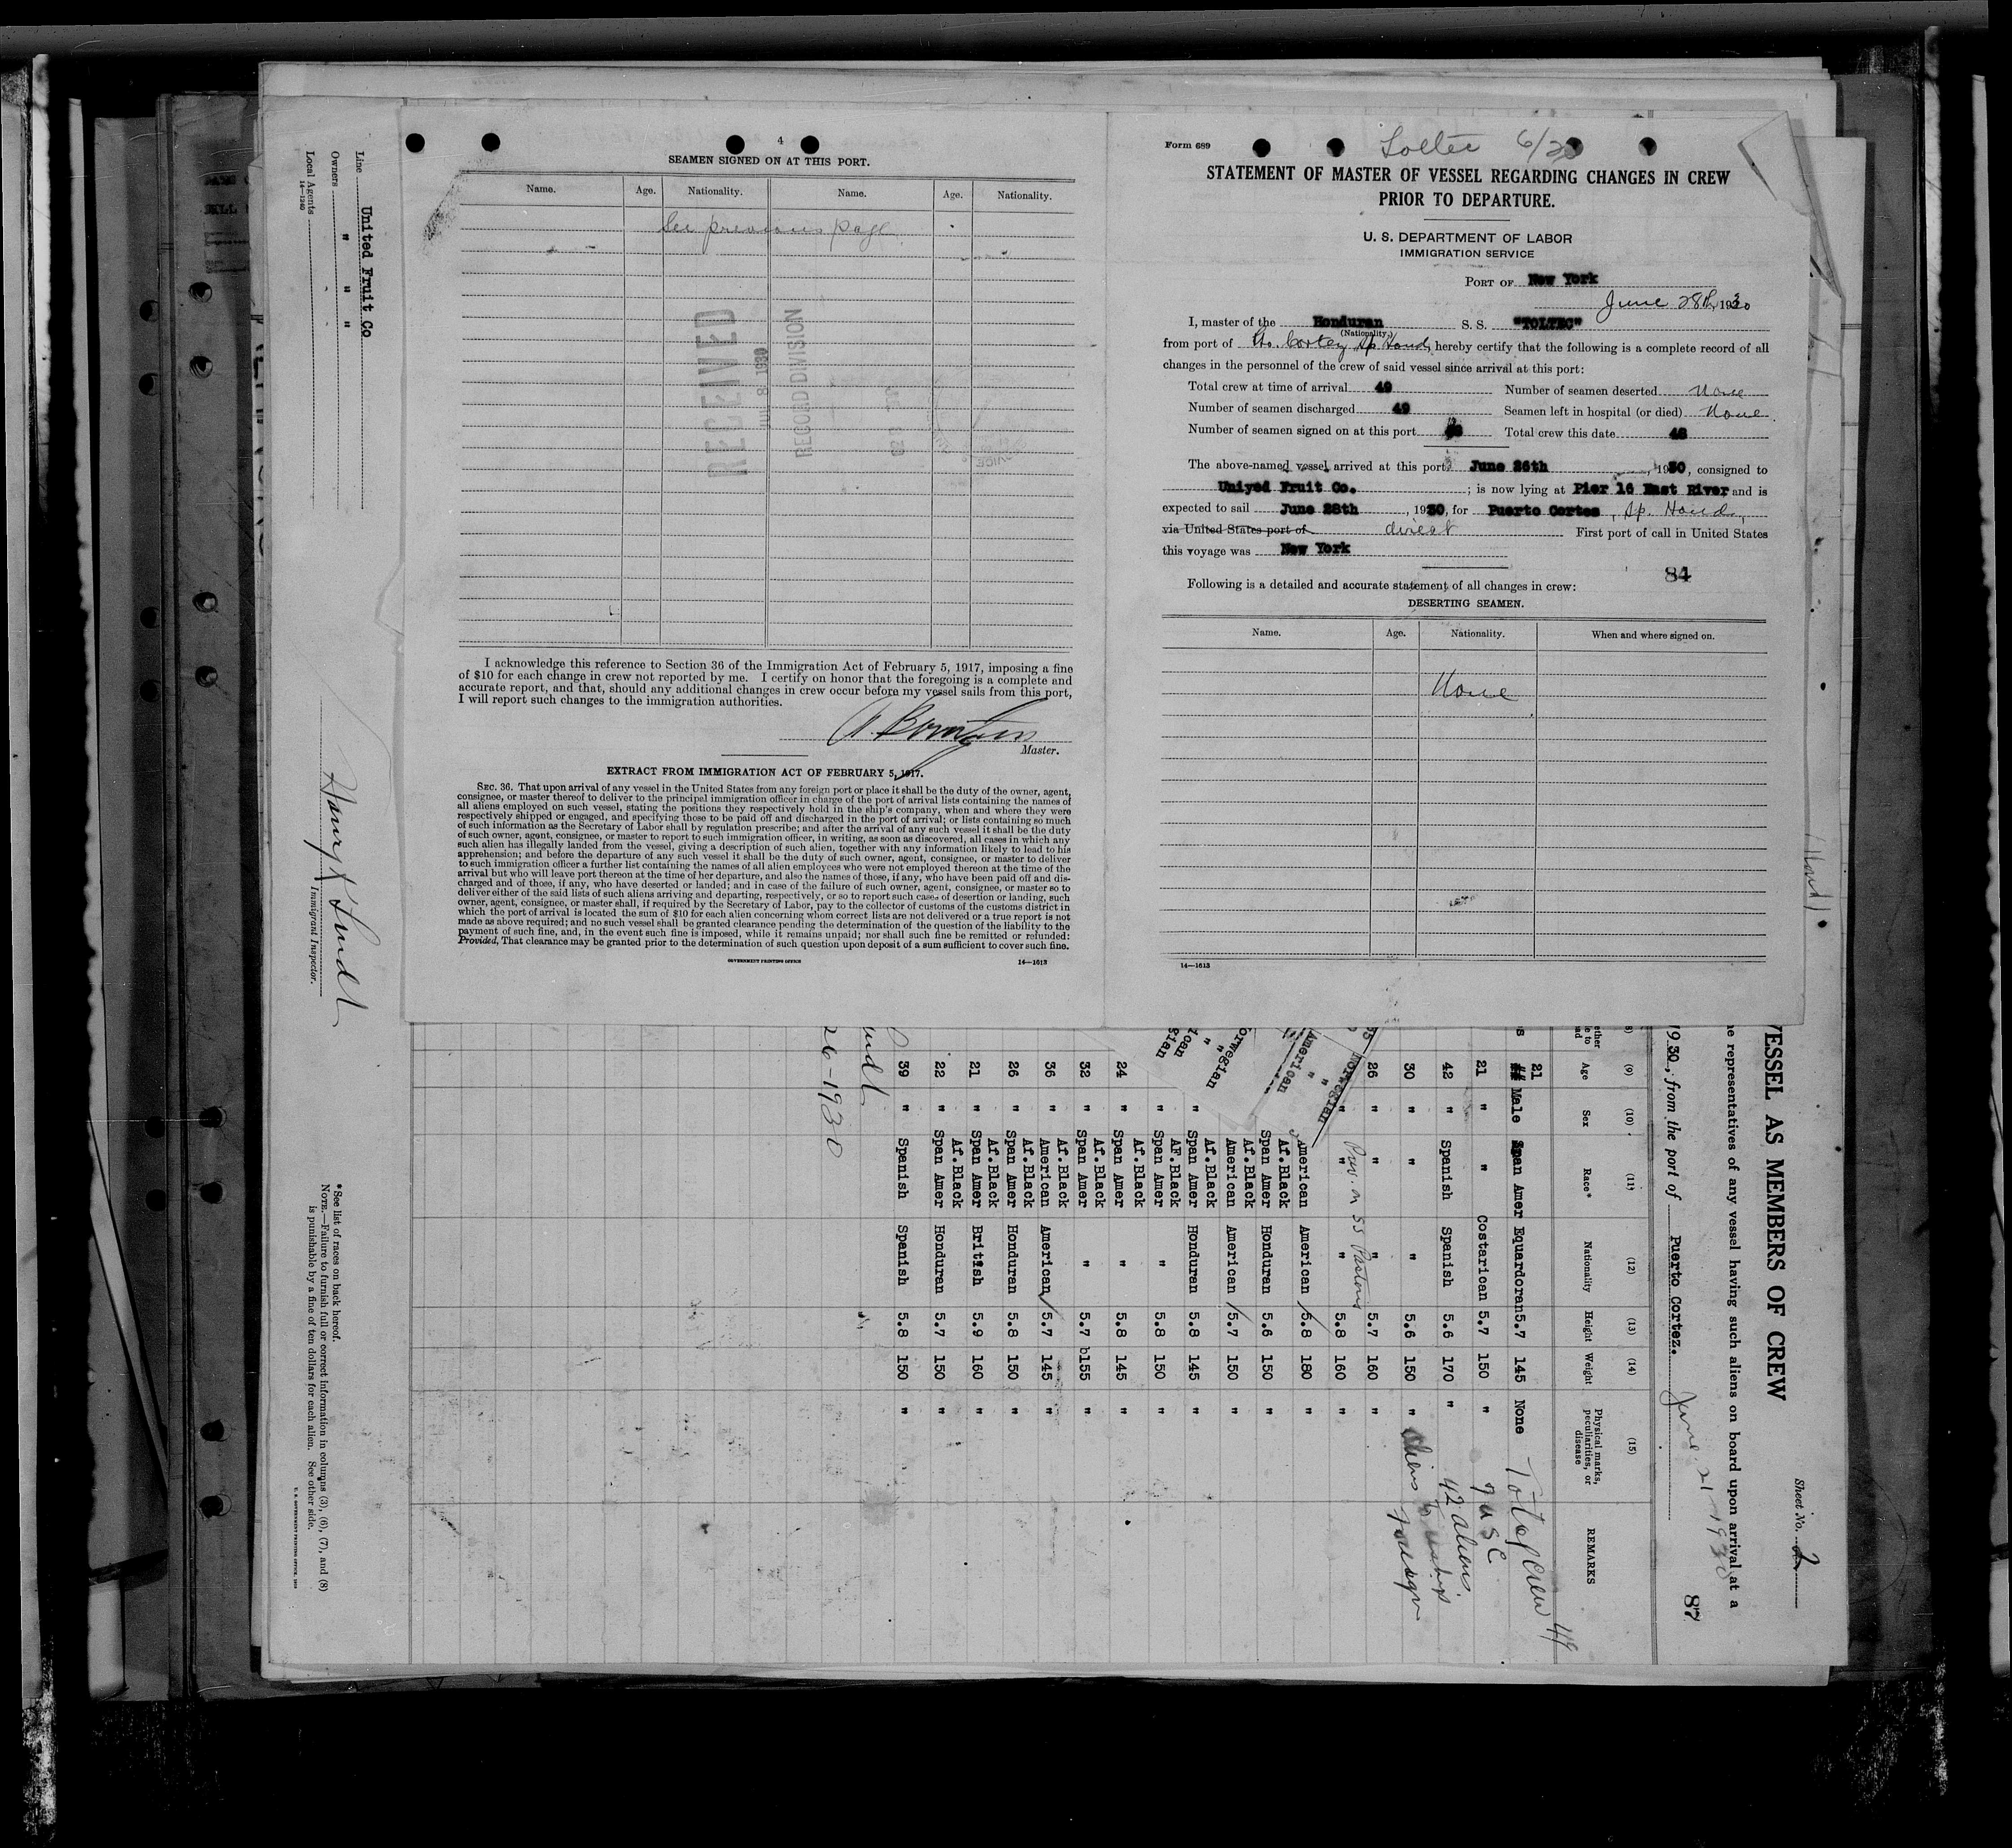 4
SEAMEN SIGNED ON AT THIS PORT.
Name. Age. Nationality. Name. Age. Nationality.
See previous page
RECEIVED
1930
RECORD DIVISION
I acknowledge this reference to Section 36 of the Immigration Act of February 5, 1917, imposing a fine
of $10 for each change in crew not reported by me. I certify on honor that the foregoing is a complete and
accurate report, and that, should any additional changes in crew occur before my vessel sails from this port,
I will report such changes to the immigration authorities.
Master.
EXTRACT FROM IMMIGRATION ACT OF FEBRUARY 5, 1917.
SEC. 36. That upon arrival of any vessel in the United States from any foreign port or place it shall be the duty of the owner, agent,
consignee, or master thereof to deliver to the principal immigration officer in charge of the port of arrival lists containing the names of
all aliens employed on such vessel, stating the positions they respectively hold in the ship's company, when and where they were
respectively shipped or engaged, and specifying those to be paid off and discharged in the port of arrival; or lists containing so much
of such information as the Secretary of Labor shall by regulation prescribe; and after the arrival of any such vessel it shall be the duty
of such owner, agent, consignee, or master to report to such immigration officer, in writing, as soon as discovered, all cases in which any
such alien has illegally landed from the vessel, giving a description of such alien, together with any information likely to lead to his
apprehension; and before the departure of any such vessel it shall be the duty of such owner, agent, consignee, or master to deliver
to such immigration officer a further list containing the names of all alien employees who were not employed thereon at the time of the
arrival but who will leave port thereon at the time of her departure, and also the names of those, if any, who have been paid off and dis-
charged and of those, if any, who have deserted or landed; and in case of the failure of such owner, agent, consignee, or master so to
deliver either of the said lists of such aliens arriving and departing, respectively, or so to report such cases of desertion or landing, such
owner, agent, consignee, or master shall, if required by the Secretary of Labor, pay to the collector of customs of the customs district in
which the port of arrival is located the sum of $10 for each alien concerning whom correct lists are not delivered or a true report is not
made as above required; and no such vessel shall be granted clearance pending the determination of the question of the liability to the
payment of such fine, and, in the event such fine is imposed, while it remains unpaid; nor shall such fine be remitted or refunded:
Provided, That clearance may be granted prior to the determination of such question upon deposit of a sum sufficient to cover such fine.
GOVERNMENT PRINTING OFFICE 14—1613
Form 689
Toltec 6/28
STATEMENT OF MASTER OF VESSEL REGARDING CHANGES IN CREW
PRIOR TO DEPARTURE.
U. S. DEPARTMENT OF LABOR
IMMIGRATION SERVICE
PORT OF New York
June 28th, 1930
I, master of the Honduran S. S. "TOLTEC"
(Nationality.)
from port of Pto. Cortez Sp. Hond, hereby certify that the following is a complete record of all
changes in the personnel of the crew of said vessel since arrival at this port:
Total crew at time of arrival 49 Number of seamen deserted None
Number of seamen discharged 49 Seamen left in hospital (or died) None
Number of seamen signed on at this port Total crew this date 48
The above-named vessel arrived at this port June 26th, 1930, consigned to
Uniyed Fruit Co.; is now lying at Pier 16 East River and is
expected to sail June 28th, 1930, for Puerto Cortes, Sp. Hond,
via United States port of direct First port of call in United States
this voyage was New York
84
Following is a detailed and accurate statement of all changes in crew:
DESERTING SEAMEN.
Name. Age. Nationality. When and where signed on.
None
14—1613
Line United Fruit Co
Owners " "
Local Agents " "
14—1240
Immigrant Inspector.
VESSEL AS MEMBERS OF CREW
Sheet No. 2
representatives of any vessel having such aliens on board upon arrival at a
1930, from the port of Puerto Cortez. June 21 1930
87
(9) (10) (11) (12) (13) (14) (15)
Age Sex Race* Nationality Height Weight Physical marks, peculiarities, or disease REMARKS
21 Male Span Amer Equardoran 5.7 145 None Total Crew 49
21 " " Costarican 5.7 150 " 7 USC
42 " Spanish Spanish 5.6 170 " 42 aliens
30 " " " 5.6 150 "
26 " " " 5.7 160 "
" " " 5.8 160 "
Prev. on SS Pastores
American American 5.8 180 "
Af.Black
Span Amer Honduran 5.6 150 "
Af.Black
American American 5.7 150 "
Af.Black
" Span Amer Honduran 5.8 145 "
AF.Black
" Span Amer " 5.8 150 "
Af.Black
24 " Span Amer " 5.8 145 "
Af.Black
32 " Span Amer " 5.7 155 "
Af.Black
36 " American American 5.7 145 "
Af.Black
26 " Span Amer Honduran 5.8 150 "
Af.Black
21 " Span Amer British 5.9 160 "
Af.Black
22 " Span Amer Honduran 5.7 150 "
39 " Spanish Spanish 5.8 150 "
26-1930
*See list of races on back hereof.
NOTE.—Failure to furnish full or correct information in columns (3), (6), (7), and (8)
is punishable by a fine of ten dollars for each alien. See other side.